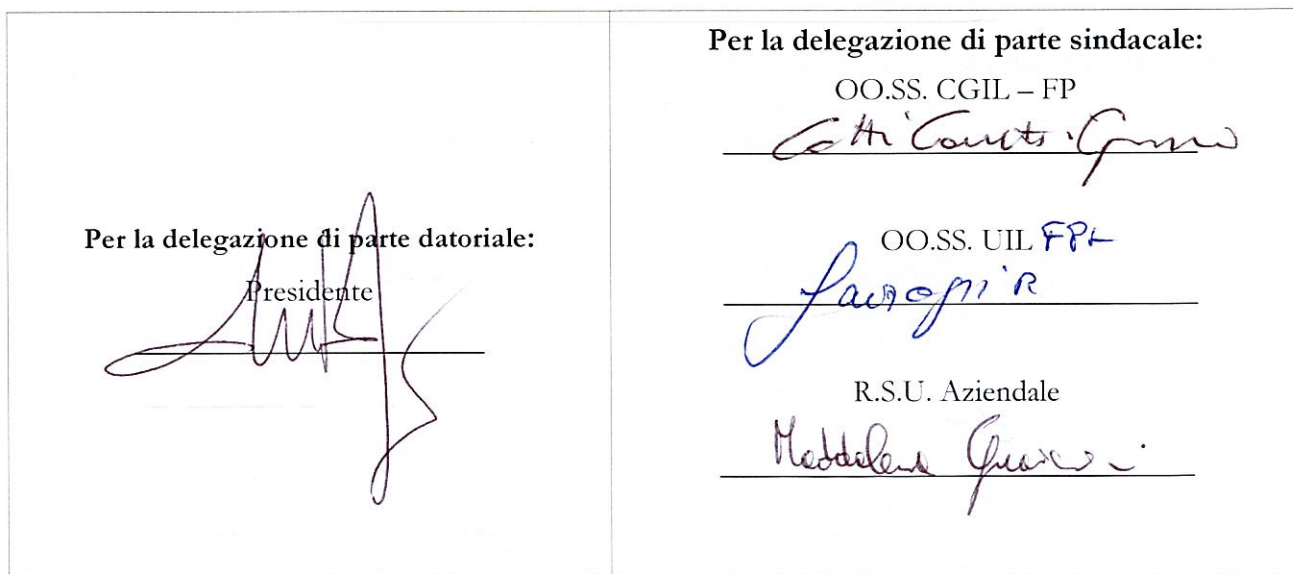 Per la delegazione di parte datoriale:
Presidente
Per la delegazione di parte sindacale:
OO.SS. CGIL – FP
OO.SS. UIL FPL
R.S.U. Aziendale
Maddalena